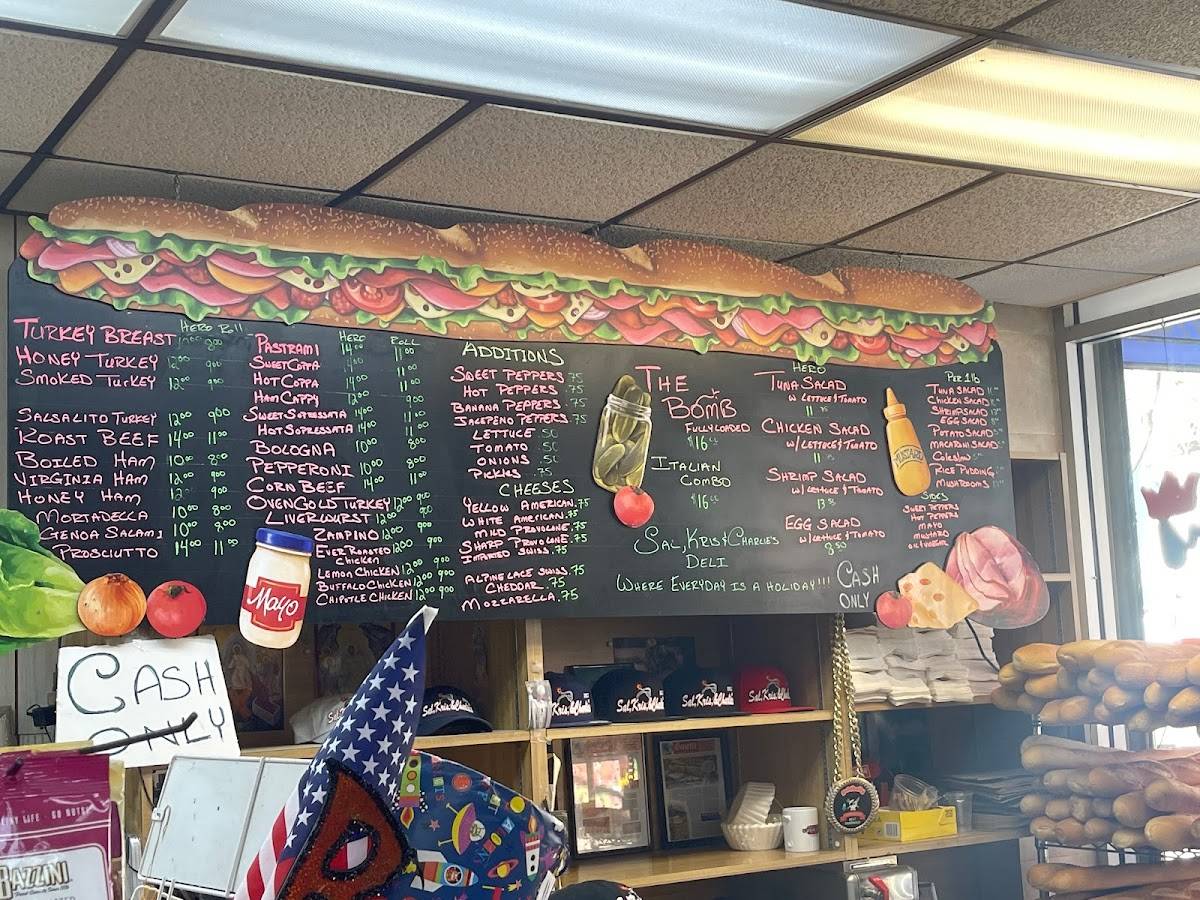 HERO ROLL
TURKEY BREAST 12.00 9.00
HONEY TURKEY 12.00 9.00
SMOKED TURKEY 12.00 9.00
SALSALITO TURKEY 12.00 9.00
ROAST BEEF 14.00 11.00
BOILED HAM 10.00 8.00
VIRGINIA HAM 12.00 9.00
HONEY HAM 12.00 9.00
MORTADELLA 10.00 8.00
GENOA SALAMI 10.00 8.00
PROSCIUTTO 14.00 11.00
HERO ROLL
PASTRAMI 14.00 11.00
SWEET COPPA 14.00 11.00
HOT COPPA 14.00 11.00
HAM CAPPY 9.00
SWEET SOPRESSATA 14.00 11.00
HOT SOPRESSATA 14.00 11.00
BOLOGNA 10.00 8.00
PEPPERONI 10.00 8.00
CORN BEEF 14.00 11.00
OVENGOLD TURKEY 12.00 9.00
LIVERWURST 12.00 9.00
ZAMPINO 12.00 9.00
EVER ROASTED CHICKEN 12.00 9.00
LEMON CHICKEN 12.00 9.00
BUFFALO CHICKEN 12.00 9.00
CHIPOTLE CHICKEN 12.00 9.00
ADDITIONS
SWEET PEPPERS .75
HOT PEPPERS .75
BANANA PEPPERS .75
JALEPENO PEPPERS .75
LETTUCE .50
TOMATO .50
ONIONS .50
PICKLES .75
CHEESES
YELLOW AMERICAN .75
WHITE AMERICAN .75
MILD PROVOLONE .75
SHARP PROVOLONE .75
IMPORTED SWISS .75
ALPINE LACE SWISS .75
CHEDDAR .75
MOZZARELLA .75
THE BOMB
FULLY LOADED
$16
ITALIAN
COMBO
$16
SAL, KRIS & CHARLIE'S
DELI
WHERE EVERYDAY IS A HOLIDAY!!!
HERO
TUNA SALAD
W/ LETTUCE & TOMATO
11
CHICKEN SALAD
W/ LETTUCE & TOMATO
11
SHRIMP SALAD
W/ LETTUCE & TOMATO
13
EGG SALAD
W/ LETTUCE & TOMATO
8.50
CASH
ONLY
PER 1 lb
TUNA SALAD
CHICKEN SALAD
SHRIMP SALAD
EGG SALAD
POTATO SALAD
MACARONI SALAD
COLESLAW
RICE PUDDING
MUSHROOMS
SIDES
SWEET PEPPERS
HOT PEPPERS
MAYO
MUSTARD
OIL & VINEGAR
MUSTARD
Mayo
CASH
ONLY
BAZZINI